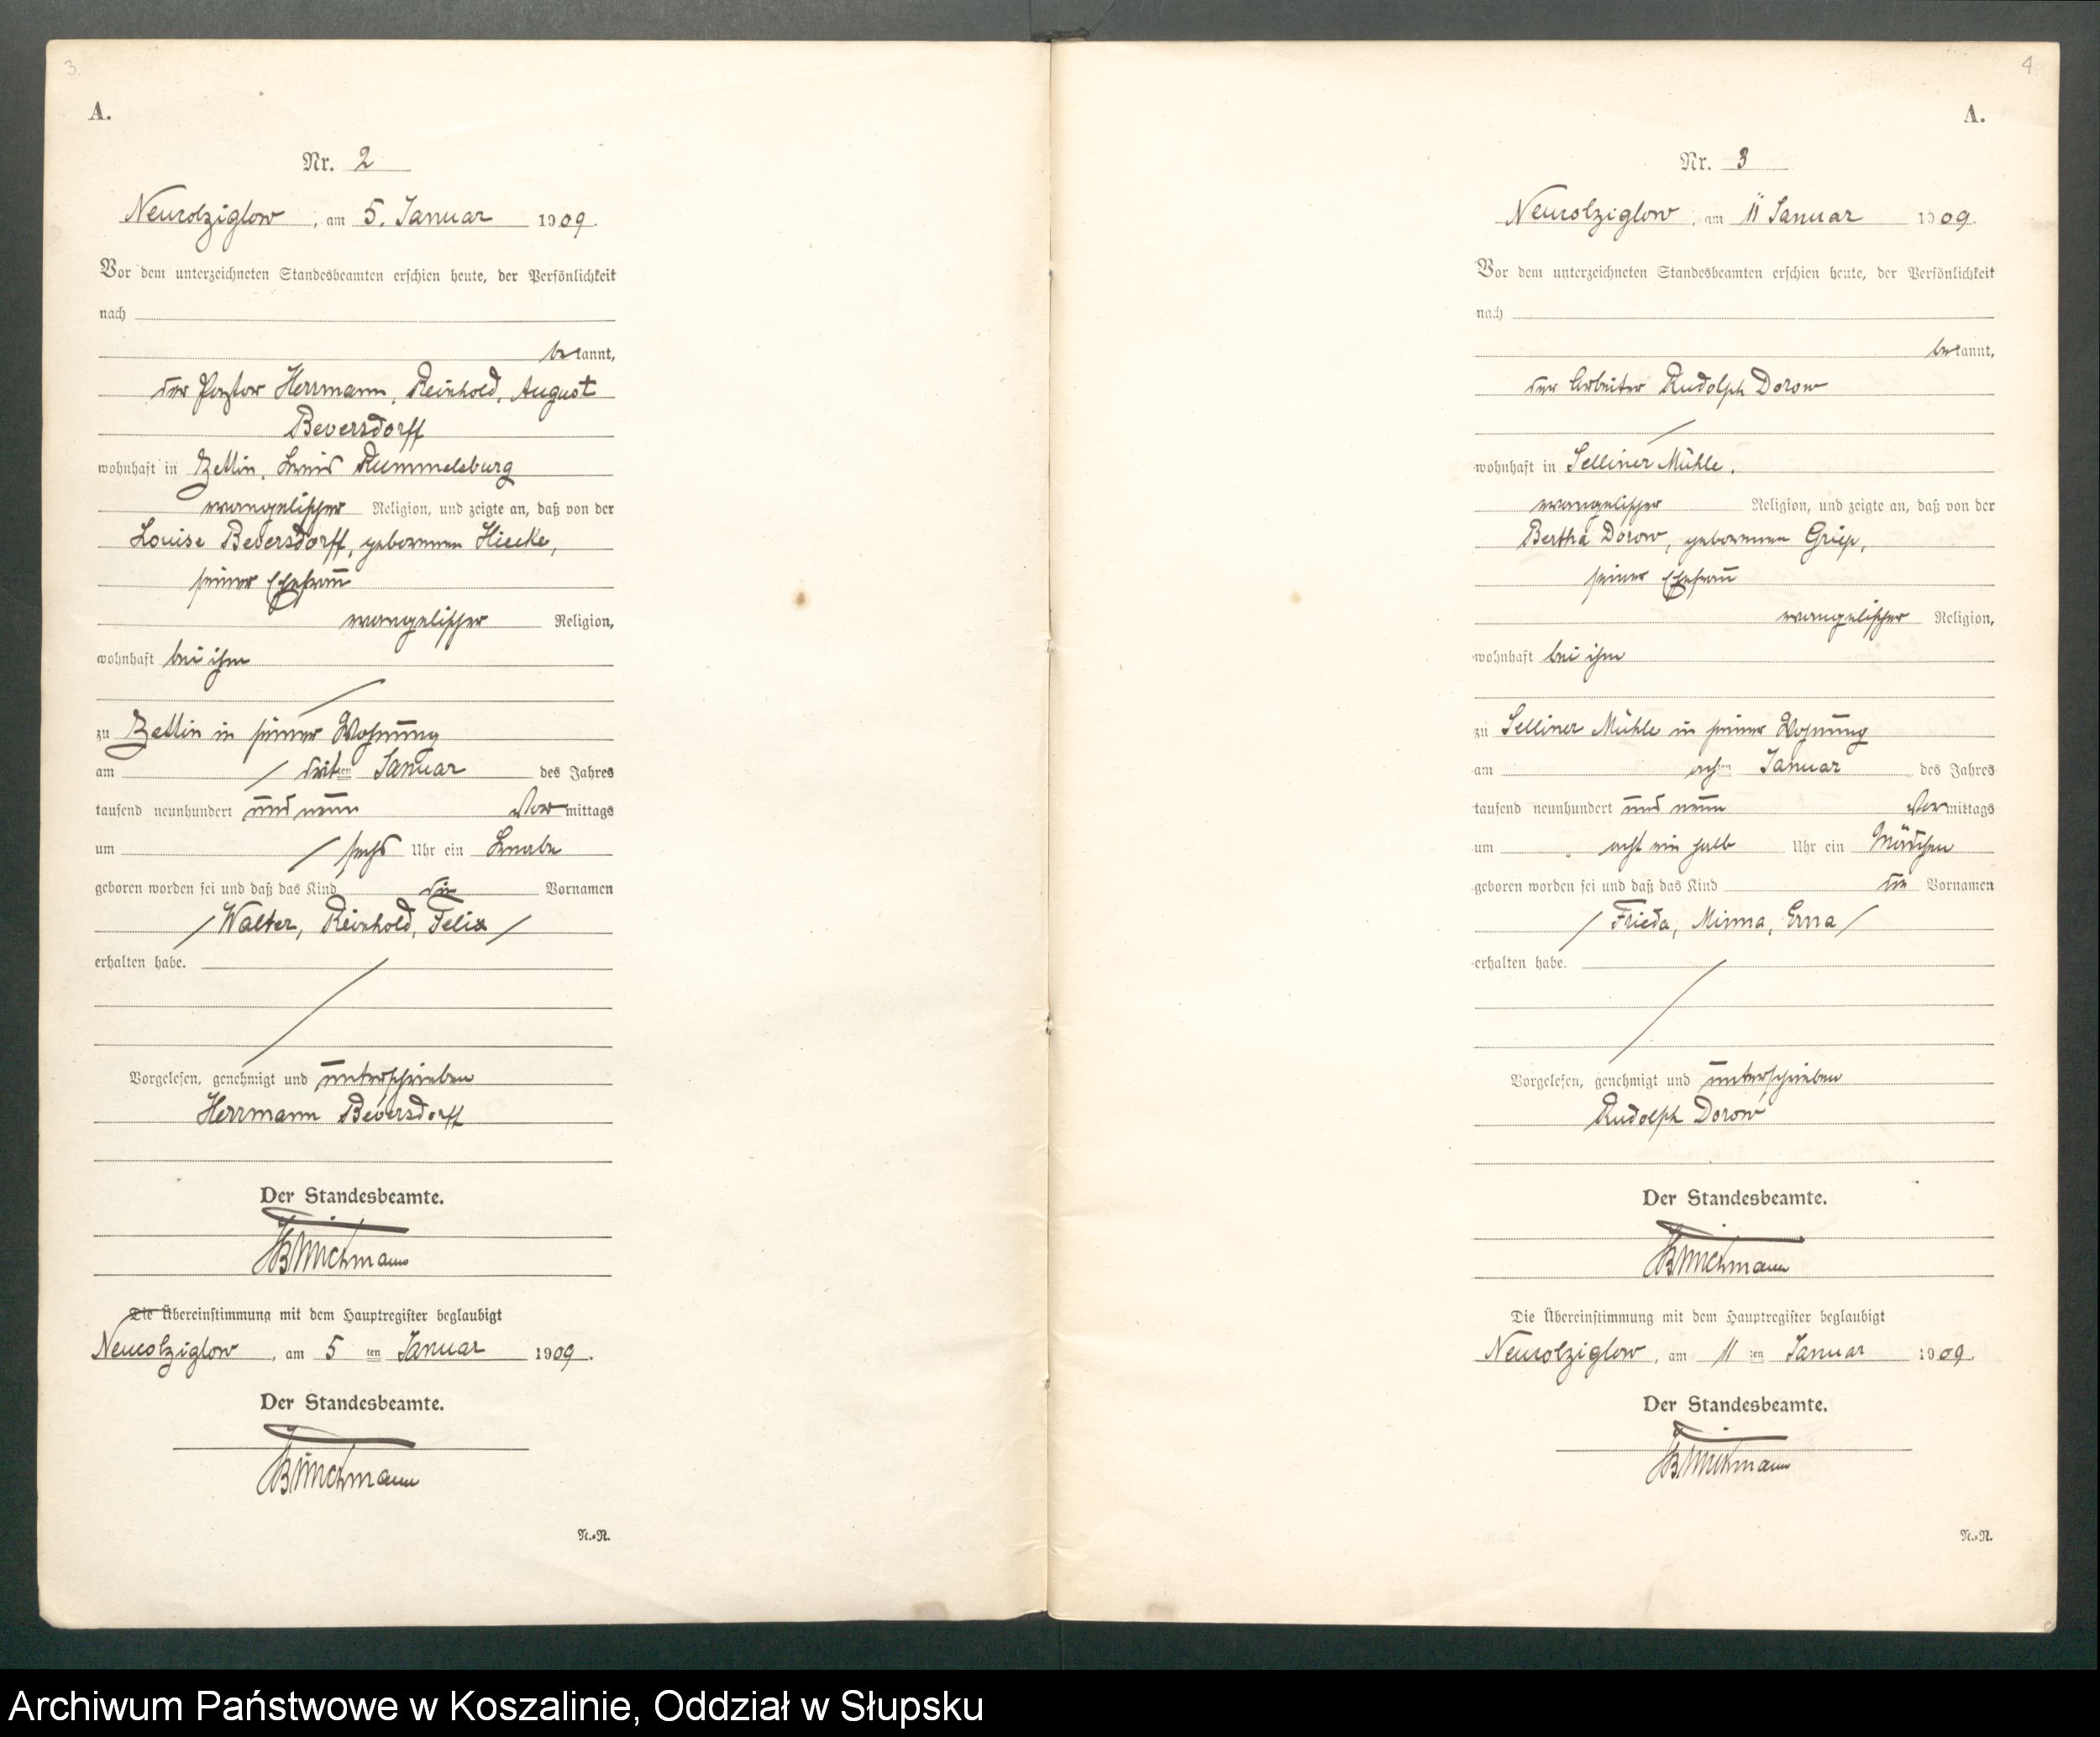 3.
A.
Nr. 2
Neukolziglow, am 5. Januar 1909.
Vor dem unterzeichneten Standesbeamten erschien heute, der Persönlichkeit
nach
bekannt,
der Pastor Herrmann, Reinhold, August
Beversdorff
wohnhaft in Zettin, Kreis Rummelsburg
evangelischer Religion, und zeigte an, daß von der
Louise Beversdorff, geborenen Hiecke,
seiner Ehefrau
evangelischer Religion,
wohnhaft bei ihm
zu Zettin in seiner Wohnung
am / dritten Januar des Jahres
tausend neunhundert und neun Vormittags
um / sechs Uhr ein Knabe
geboren worden sei und daß das Kind die Vornamen
/ Walter, Reinhold, Felix /
erhalten habe.
Vorgelesen, genehmigt und unterschrieben
Herrmann Beversdorff
Der Standesbeamte.
Die Übereinstimmung mit dem Hauptregister beglaubigt
Neukolziglow, am 5 ten Januar 1909.
Der Standesbeamte.
N.=R.
4
A.
Nr. 3
Neukolziglow, am 11 Januar 1909.
Vor dem unterzeichneten Standesbeamten erschien heute, der Persönlichkeit
nach
bekannt,
der Arbeiter Rudolph Dorow
wohnhaft in Selliner Mühle,
evangelischer Religion, und zeigte an, daß von der
Bertha Dorow, geborenen Griep,
seiner Ehefrau
evangelischer Religion,
wohnhaft bei ihm
zu Selliner Mühle in seiner Wohnung
am achten Januar des Jahres
tausend neunhundert und neun Vormittags
um acht ein halb Uhr ein Mädchen
geboren worden sei und daß das Kind die Vornamen
/ Frieda, Minna, Erna /
erhalten habe.
Vorgelesen, genehmigt und unterschrieben
Rudolph Dorow
Der Standesbeamte.
Die Übereinstimmung mit dem Hauptregister beglaubigt
Neukolziglow, am 11 ten Januar 1909.
Der Standesbeamte.
N.=R.
Archiwum Państwowe w Koszalinie, Oddział w Słupsku